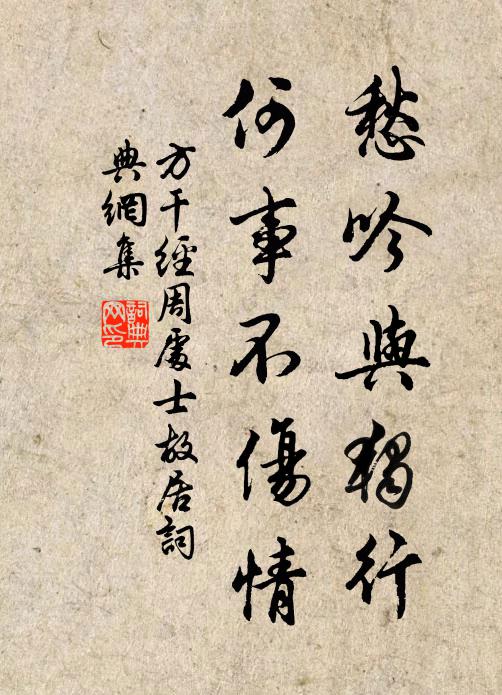 愁吟與獨行
何事不傷情
方干經周處士故居詞
典網集
詞典
网印